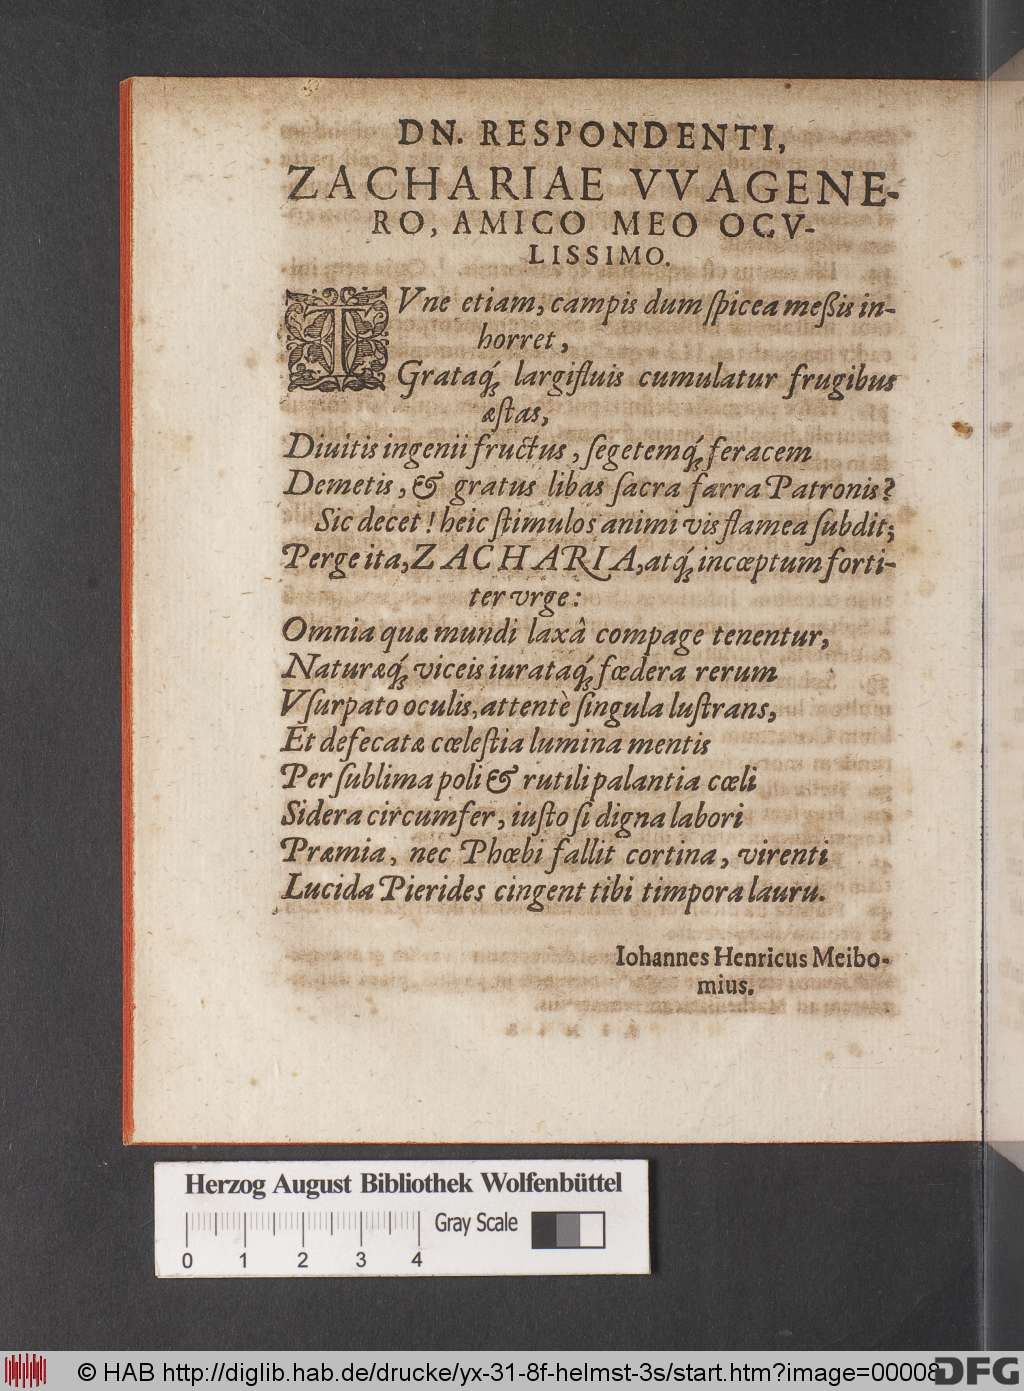 DN. RESPONDENTI,
ZACHARIAE VVAGENE-
RO, AMICO MEO OCV-
LISSIMO.
TVne etiam, campis dum ſpicea meßis in-
horret,
Grataq́; largifluis cumulatur frugibus
æſtas,
Diuitis ingenii fructus, ſegetemq́; feracem
Demetis, & gratus libas ſacra farra Patronis?
Sic decet! heic ſtimulos animi vis flamea ſubdit;
Perge ita, ZACHARIA, atq́; incœptum forti-
ter vrge:
Omnia quæ mundi laxâ compage tenentur,
Naturæq́; viceis iurataq́; fœdera rerum
Vſurpato oculis, attentè ſingula luſtrans,
Et defecatæ cœleſtia lumina mentis
Per ſublima poli & rutili palantia cœli
Sidera circumfer, iuſto ſi digna labori
Præmia, nec Phœbi fallit cortina, virenti
Lucida Pierides cingent tibi timpora lauru.
Iohannes Henricus Meibo-
mius.
Herzog August Bibliothek Wolfenbüttel
Gray Scale
0 1 2 3 4
© HAB http://diglib.hab.de/drucke/yx-31-8f-helmst-3s/start.htm?image=00008
DFG